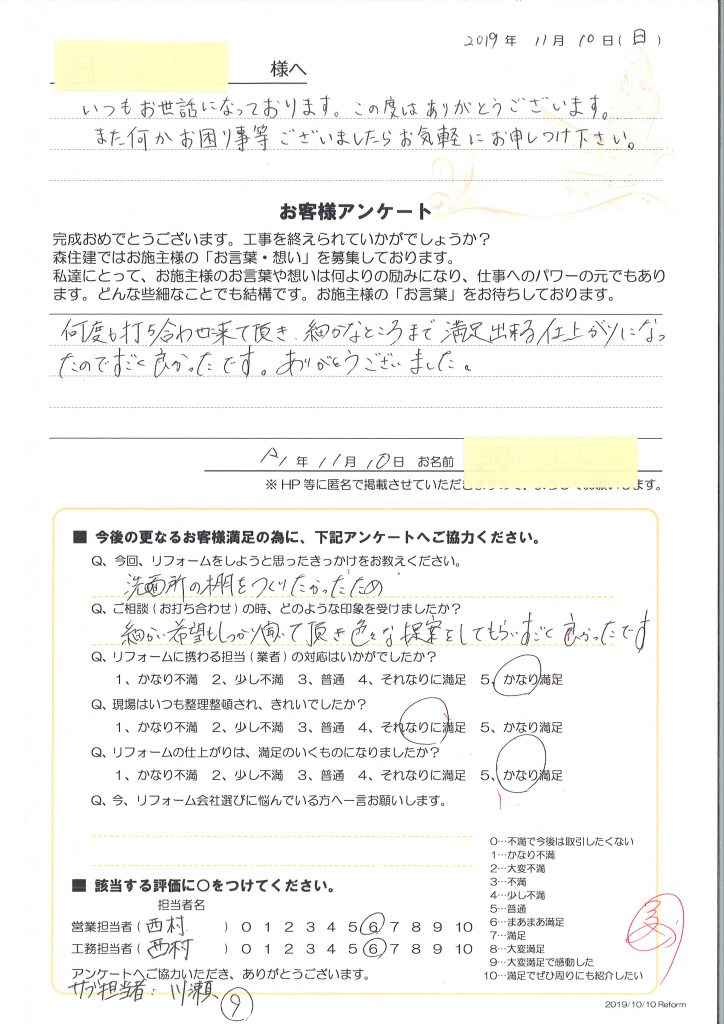 2019年 11月 10日(日)
様へ
いつもお世話になっております。この度はありがとうございます。
また何かお困り事等ございましたらお気軽にお申しつけ下さい。
お客様アンケート
完成おめでとうございます。工事を終えられていかがでしょうか？
森住建ではお施主様の「お言葉・想い」を募集しております。
私達にとって、お施主様のお言葉や想いは何よりの励みになり、仕事へのパワーの元でもあり
ます。どんな些細なことでも結構です。お施主様の「お言葉」をお待ちしております。
何度も打ち合わせ来て頂き、細かなところまで満足出来る仕上がりになっ
たのですごく良かったです。ありがとうございました。
R1年 11月 10日 お名前
※HP等に匿名で掲載させていただき
■ 今後の更なるお客様満足の為に、下記アンケートへご協力ください。
Q、今回、リフォームをしようと思ったきっかけをお教えください。
洗面所の棚をつくりたかったため
Q、ご相談(お打ち合わせ)の時、どのような印象を受けましたか？
細かい希望もしっかり聞いて頂き色々な提案をしてもらいすごく良かったです
Q、リフォームに携わる担当(業者)の対応はいかがでしたか？
1、かなり不満 2、少し不満 3、普通 4、それなりに満足 5、かなり満足
Q、現場はいつも整理整頓され、きれいでしたか？
1、かなり不満 2、少し不満 3、普通 4、それなりに満足 5、かなり満足
Q、リフォームの仕上がりは、満足のいくものになりましたか？
1、かなり不満 2、少し不満 3、普通 4、それなりに満足 5、かなり満足
Q、今、リフォーム会社選びに悩んでいる方へ一言お願いします。
0…不満で今後は取引したくない
1…かなり不満
2…大変不満
3…不満
4…少し不満
5…普通
6…まあまあ満足
7…満足
8…大変満足
9…大変満足で感動した
10…満足でぜひ周りにも紹介したい
■ 該当する評価に○をつけてください。
担当者名
営業担当者(西村) 0 1 2 3 4 5 6 7 8 9 10
工務担当者(西村) 0 1 2 3 4 5 6 7 8 9 10
アンケートへご協力いただき、ありがとうございます。
サブ担当者：川瀬 9
2019/10/10 Reform